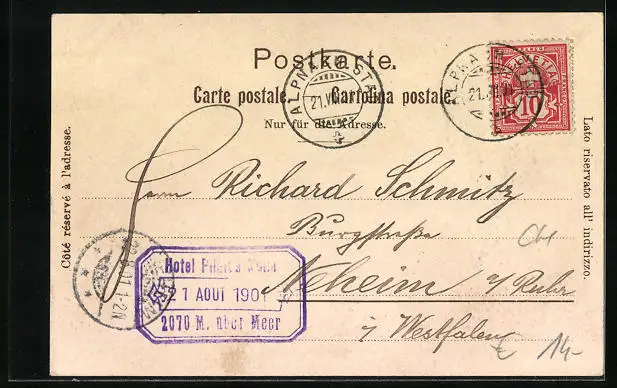 Postkarte.
Carte postale. Cartolina postale.
Nur für die Adresse.
Côté réservé à l'adresse.
Lato riservato all' indirizzo.
ALPNACH-STAD
21.VIII.
ALPNACH
21.VIII.
HELVETIA
10
Herrn Richard Schmitz
Burgstraße
Neheim a/Ruhr
i/Westfalen
Hotel Pilatus Kulm
21 AOUT 1901
2070 M. über Meer
1-2N
14-